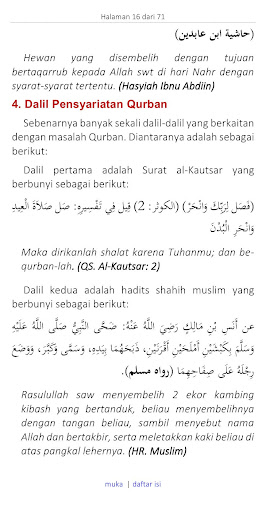 Halaman 16 dari 71
(حاشية ابن عابدين)
Hewan yang disembelih dengan tujuan
bertaqarrub kepada Allah swt di hari Nahr dengan
syarat-syarat tertentu. (Hasyiah Ibnu Abdiin)
4. Dalil Pensyariatan Qurban
Sebenarnya banyak sekali dalil-dalil yang berkaitan
dengan masalah Qurban. Diantaranya adalah sebagai
berikut:
Dalil pertama adalah Surat al-Kautsar yang
berbunyi sebagai berikut:
(فَصَلِ لِرَبِّكَ وَانْحَرْ) (الكوثر: 2) قِيل فِي تَفْسِيرِهِ: صَل صَلاَةَ الْعِيدِ
وَانْحَرِ الْبُدْنَ
Maka dirikanlah shalat karena Tuhanmu; dan be-
qurban-lah. (QS. Al-Kautsar: 2)
Dalil kedua adalah hadits shahih muslim yang
berbunyi sebagai berikut:
عن أَنَسِ بْنِ مَالِكٍ رَضِيَ اللَّهُ عَنْهُ: ضَحَّى النَّبِيُّ صَلَّى اللَّهُ عَلَيْهِ
وَسَلَّمَ بِكَبْشَيْنِ أَمْلَحَيْنِ أَقْرَنَيْنِ، ذَبَحَهُمَا بِيَدِهِ، وَسَمَّى وَكَبَّرَ، وَوَضَعَ
رِجْلَهُ عَلَى صِفَاحِهِمَا (رواه مسلم).
Rasulullah saw menyembelih 2 ekor kambing
kibash yang bertanduk, beliau menyembelihnya
dengan tangan beliau, sambil menyebut nama
Allah dan bertakbir, serta meletakkan kaki beliau di
atas pangkal lehernya. (HR. Muslim)
muka | daftar isi